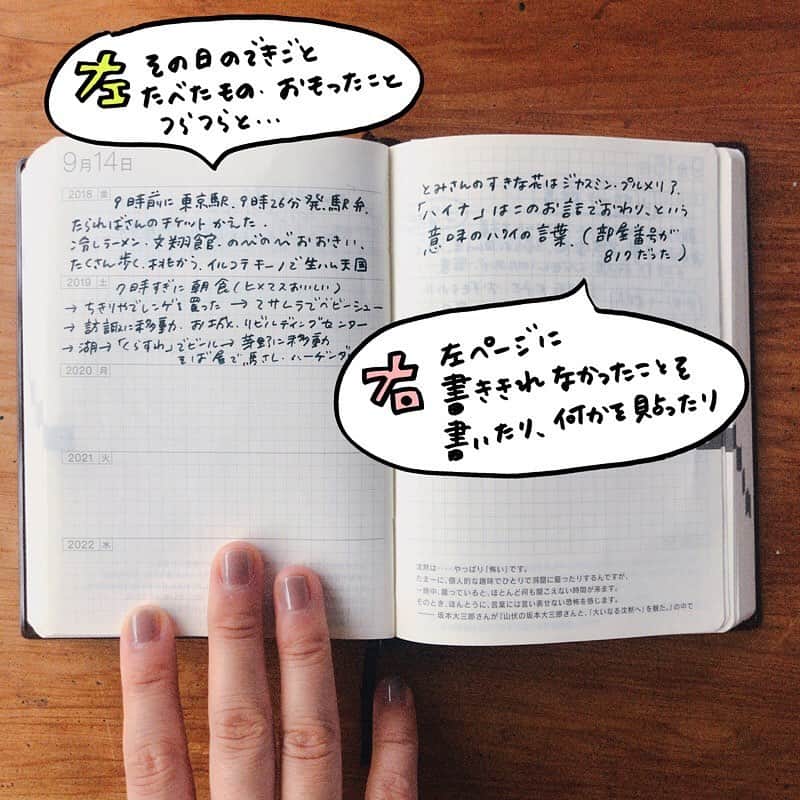 左 その日のできごと
たべたもの・おもったこと
つらつらと…
9月14日
2018 金
9時前に東京駅、9時26分発、駅弁、
たらればさんのチケットかえた。
冷しラーメン・文翔館・のべのべおおきい、
たくさん歩く、桃かう、イルコテキーノで生ハム天国
2019 土
7時すぎに朝食(ヒメマスおいしい)
→ちきりやでレンゲを買った→てサムラでベビーシュー
→諏訪に移動・お城・リビルディングセンター
→湖→「くらすわ」でビール→茅野に移動
そば屋で馬さし・ハーゲンダ
2020 月
2021 火
2022 水
とみさんのすきな花はジャスミン・プルメリア、
「ハイナ」はこのお話でおわり、という
意味のハワイの言葉、(部屋番号が
817だった)
右 左ページに
書ききれなかったことを
書いたり、何かを貼ったり
沈黙は‥‥やっぱり「怖い」です。
たまーに、個人的な趣味でひとりで洞窟に籠ったりするんですが、
一時中、籠っていると、ほとんど何も聞こえない時間が来ます。
そのとき、ほんとうに、言葉には言い表せない恐怖を感じます。
――坂本大三郎さんが『山伏の坂本大三郎さんと、「大いなる沈黙へ」を観た。』の中で